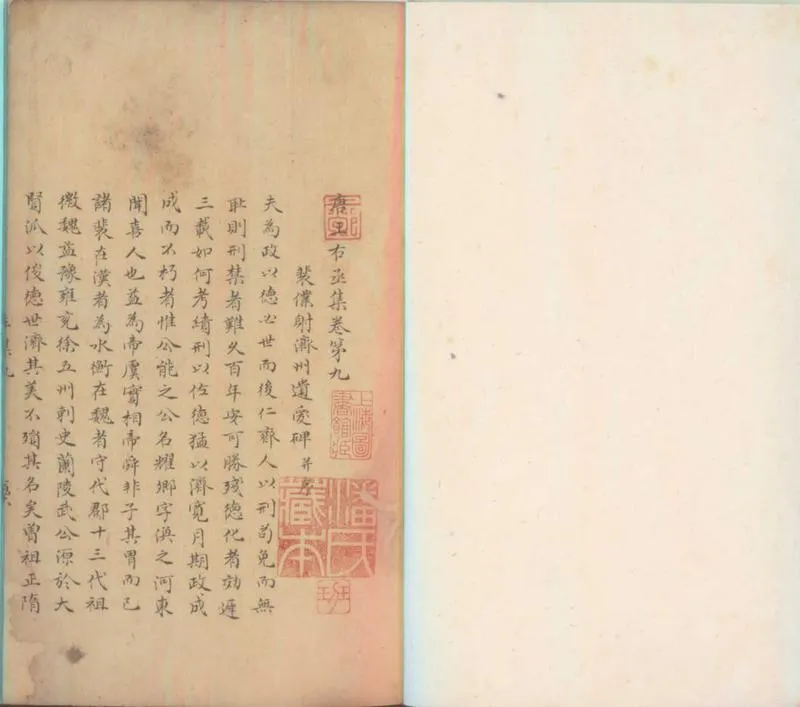 唐王右丞集卷第九
裴僕射濟州遺愛碑 并序
夫為政以德必世而後仁齊人以刑苟免而無
恥則刑禁者難久百年安可勝殘德化者効遲
三載如何考績刑以佐德猛以濟寬月期政成
成而不朽者惟公能之公名耀卿字渙之河東
聞喜人也益為帝虞實相帝舜非子其胄而已
諸裴在漢者為水衡在魏者守代郡十三代祖
徽魏益豫雍兗徐五州刺史蘭陵武公源於大
賢派以俊德世濟其美不殞其名矣曾祖正隋
上海圖
書館
藏
潘氏
藏本